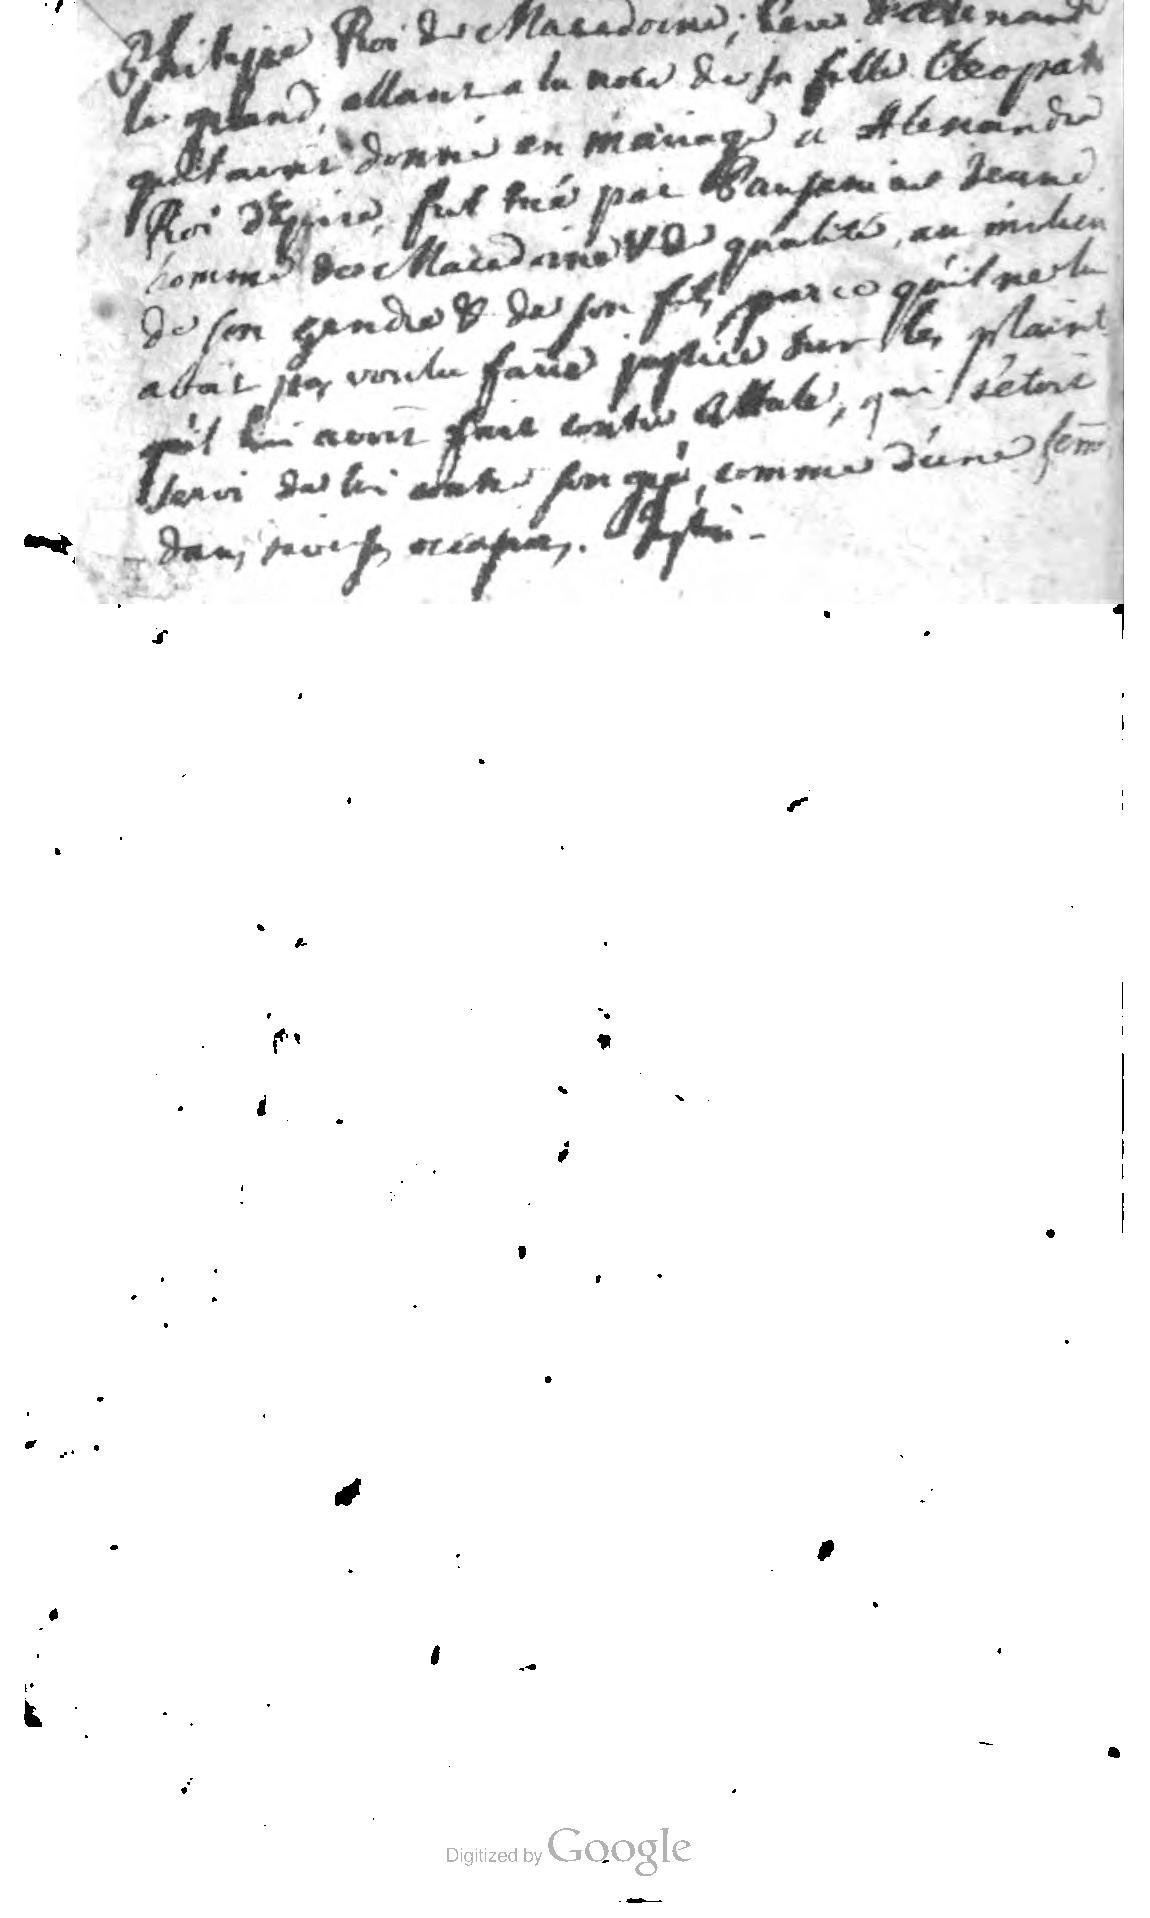 Philippe Roi de Macedoine, Pere d'Alexandre
le grand, allant a la noce de sa fille Cleopat
qu'il avoit donné en mariage a Alexandre
Roi d'Epire, fut tué par Pausanias Jeune
homme de Macedoine & de qualité, au milieu
de son gendre & de son fils parce qu'il ne lui
avoit pas voulu faire justice sur les plaint
qu'il lui avoit fait contre Attale, qui s'etoit
servi de lui contre son gré, comme d'une fem̄
dans ses occasions. Justin -
Digitized by Google